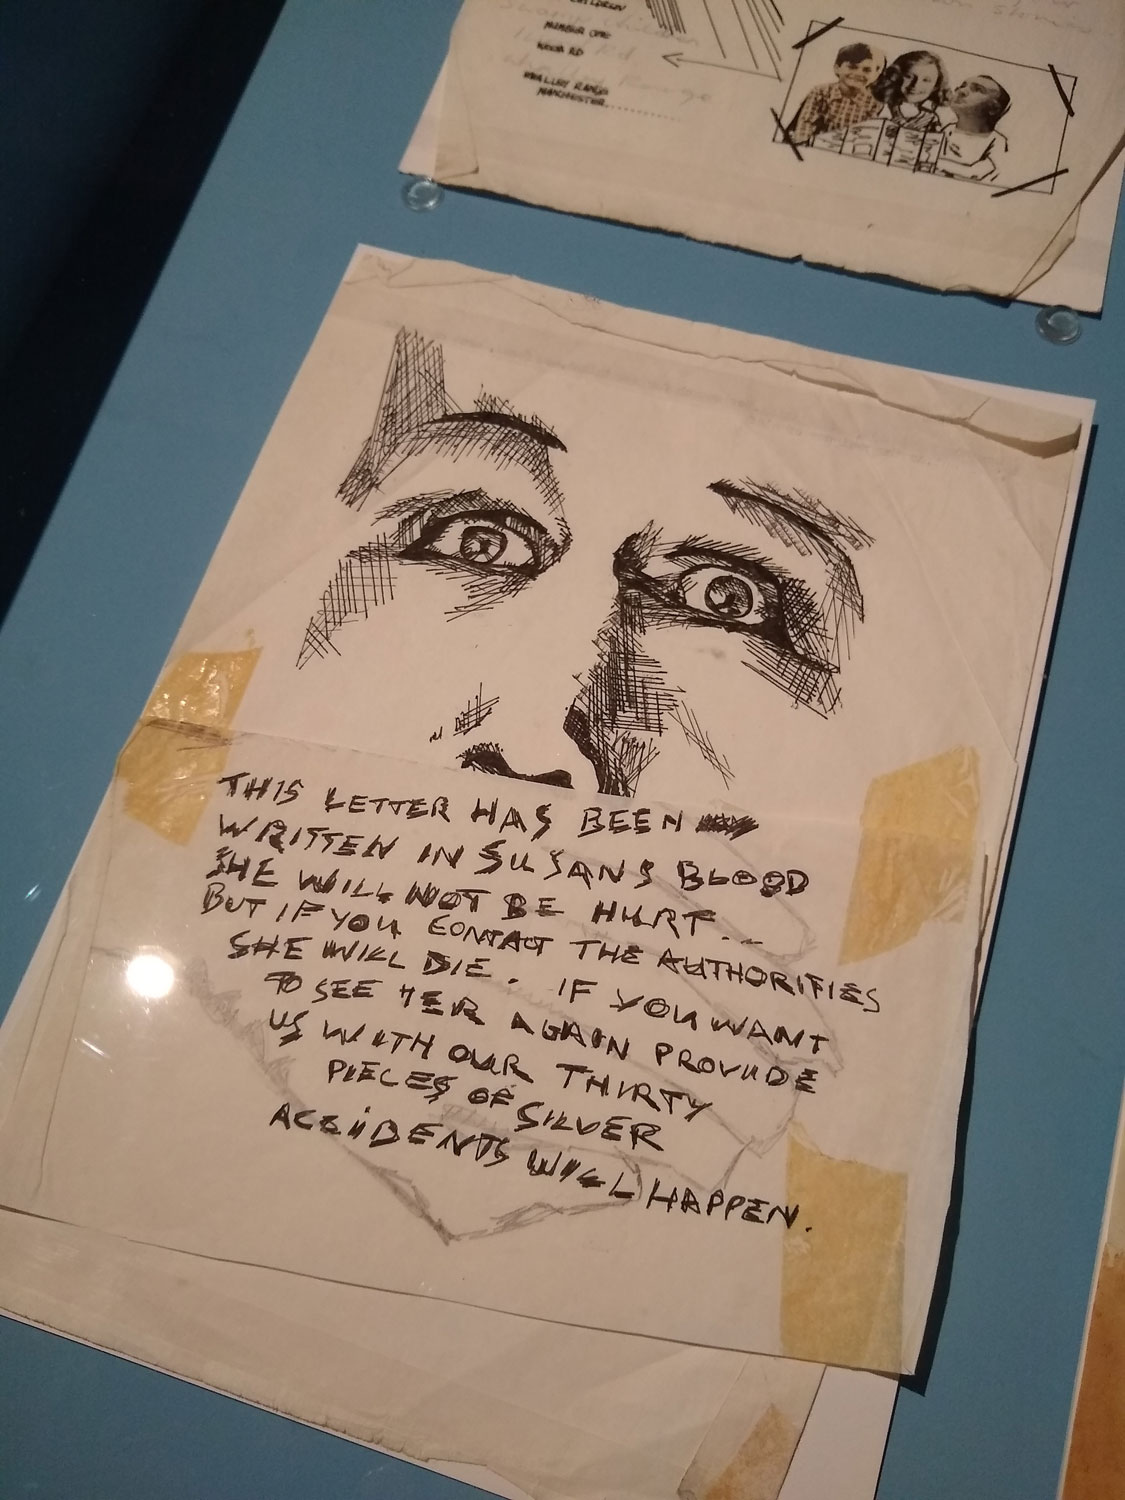 CHILDREN
MEMBER ONE
RD
WHALLEY RANGE
MANCHESTER
THIS LETTER HAS BEEN
WRITTEN IN SUSANS BLOOD
SHE WILL NOT BE HURT...
BUT IF YOU CONTACT THE AUTHORITIES
SHE WILL DIE. IF YOU WANT
TO SEE HER AGAIN PROVIDE
US WITH OUR THIRTY
PIECES OF SILVER
ACCIDENTS WILL HAPPEN.